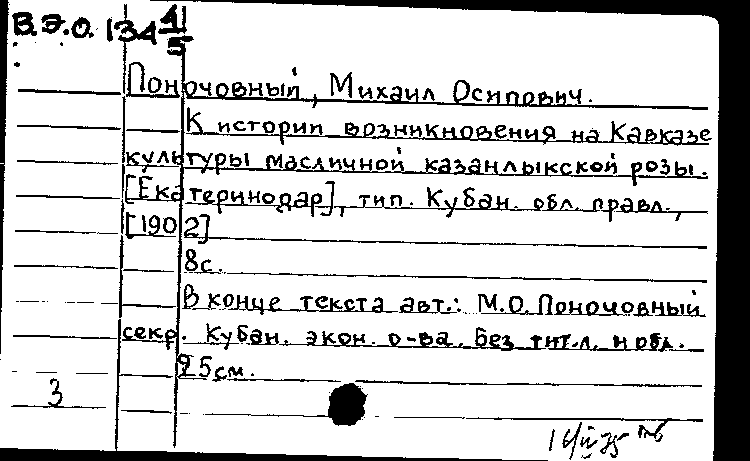 В.Э.О. 134 4/5
Поночовный, Михаил Осипович.
К истории возникновения на Кавказе
культуры масличной казанлыкской розы.
[Екатеринодар], тип. Кубан. обл. правл.,
[1902]
8с.
В конце текста авт.: М.О. Поночовный
секр. Кубан. экон. о-ва. Без тит.л. и обл.
25см.
3